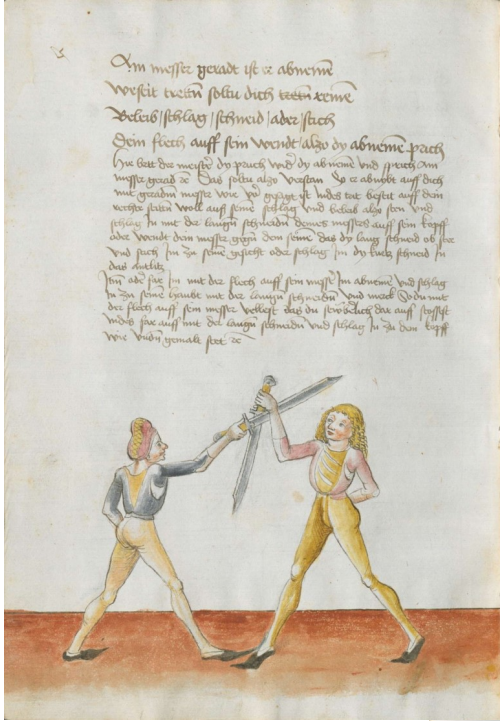 Am messer geradt ist er abneme̅
Weseit trette̅ soltu dich trette̅ reme̅
Beleib / schlag / schneid / ader / stich
Dein flech auff sein wendt also dy abneme̅ prich
Hie lertt der meister dy pruch wid' dy abneme̅ vnd spricht Am
messer gerad ec Das soltu also verstan So er abnÿbt auff dich
mit geradm̅ messer wie vor gesagt ist Indes trit beseit auff dein
rechte seitn̅ woll auff seine̅ schlag vnd beleib also sten vnd
schlag In mit der langn̅ schneidn̅ deines messers auff sein kopff
oder wendt dein messer gegn̅ dem seine̅ das dy lang schneid ob stee
vnd stich Im zu seine̅ gesicht oder schlag Im dy kurtz schneid in
das antlitz
Itm̅ oder far im mit der flech auff sein messer Im abneme̅ vnd schlag
in zu seine̅ haubt mit der langn̅ schneidn̅ vnd merck So du mit
der flech auff sein messer vellest das du dar auff stossest
Indes far auff mit der langn̅ schneidn̅ vnd schlag In zu dem kopff
wie vndn̅ gemalt stet ec